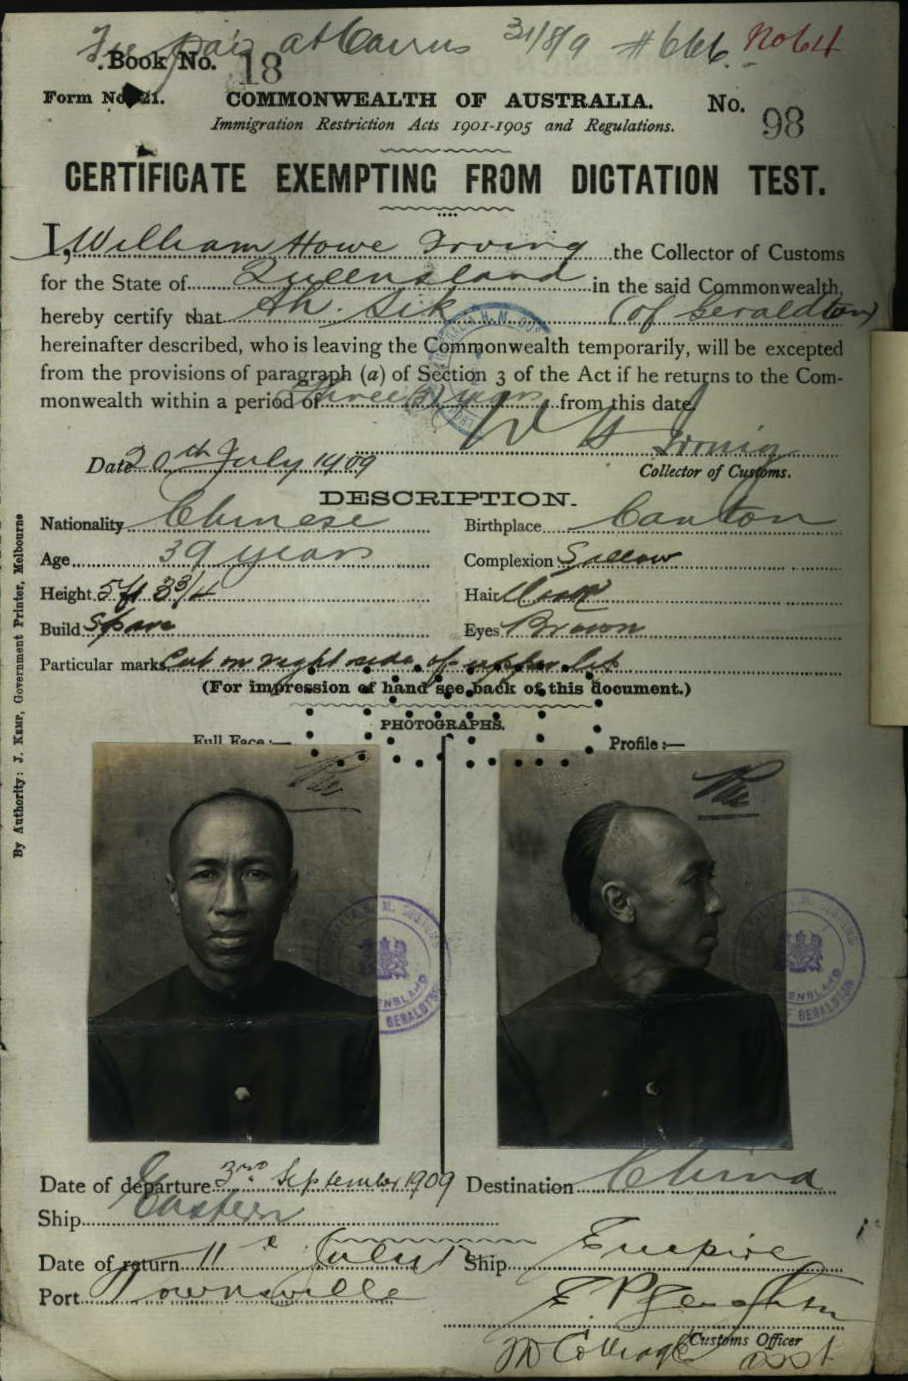 Fee paid at Cairns 31/8/9 #666. No 64
Book No. 18
Form No. 21. COMMONWEALTH OF AUSTRALIA. No. 98
Immigration Restriction Acts 1901-1905 and Regulations.
CERTIFICATE EXEMPTING FROM DICTATION TEST.
I, William Howe Irving the Collector of Customs
for the State of Queensland in the said Commonwealth,
hereby certify that Ah Sik (of Geraldton)
hereinafter described, who is leaving the Commonwealth temporarily, will be excepted
from the provisions of paragraph (a) of Section 3 of the Act if he returns to the Com-
monwealth within a period of three (3) years from this date.
W H Irving
Date 20th July 1909 Collector of Customs.
DESCRIPTION.
Nationality Chinese Birthplace Canton
Age 39 years Complexion Sallow
Height 5 ft 3 3/4 Hair Black
Build Spare Eyes Brown
Particular marks Cut on right side of upper lip
(For impression of hand see back of this document.)
PHOTOGRAPHS.
Full Face :— Profile :—
Date of departure 3rd September 1909 Destination China
Ship Eastern
Date of return 11th July Ship Empire
Port Townsville
Customs Officer
By Authority: J. KEMP, Government Printer, Melbourne